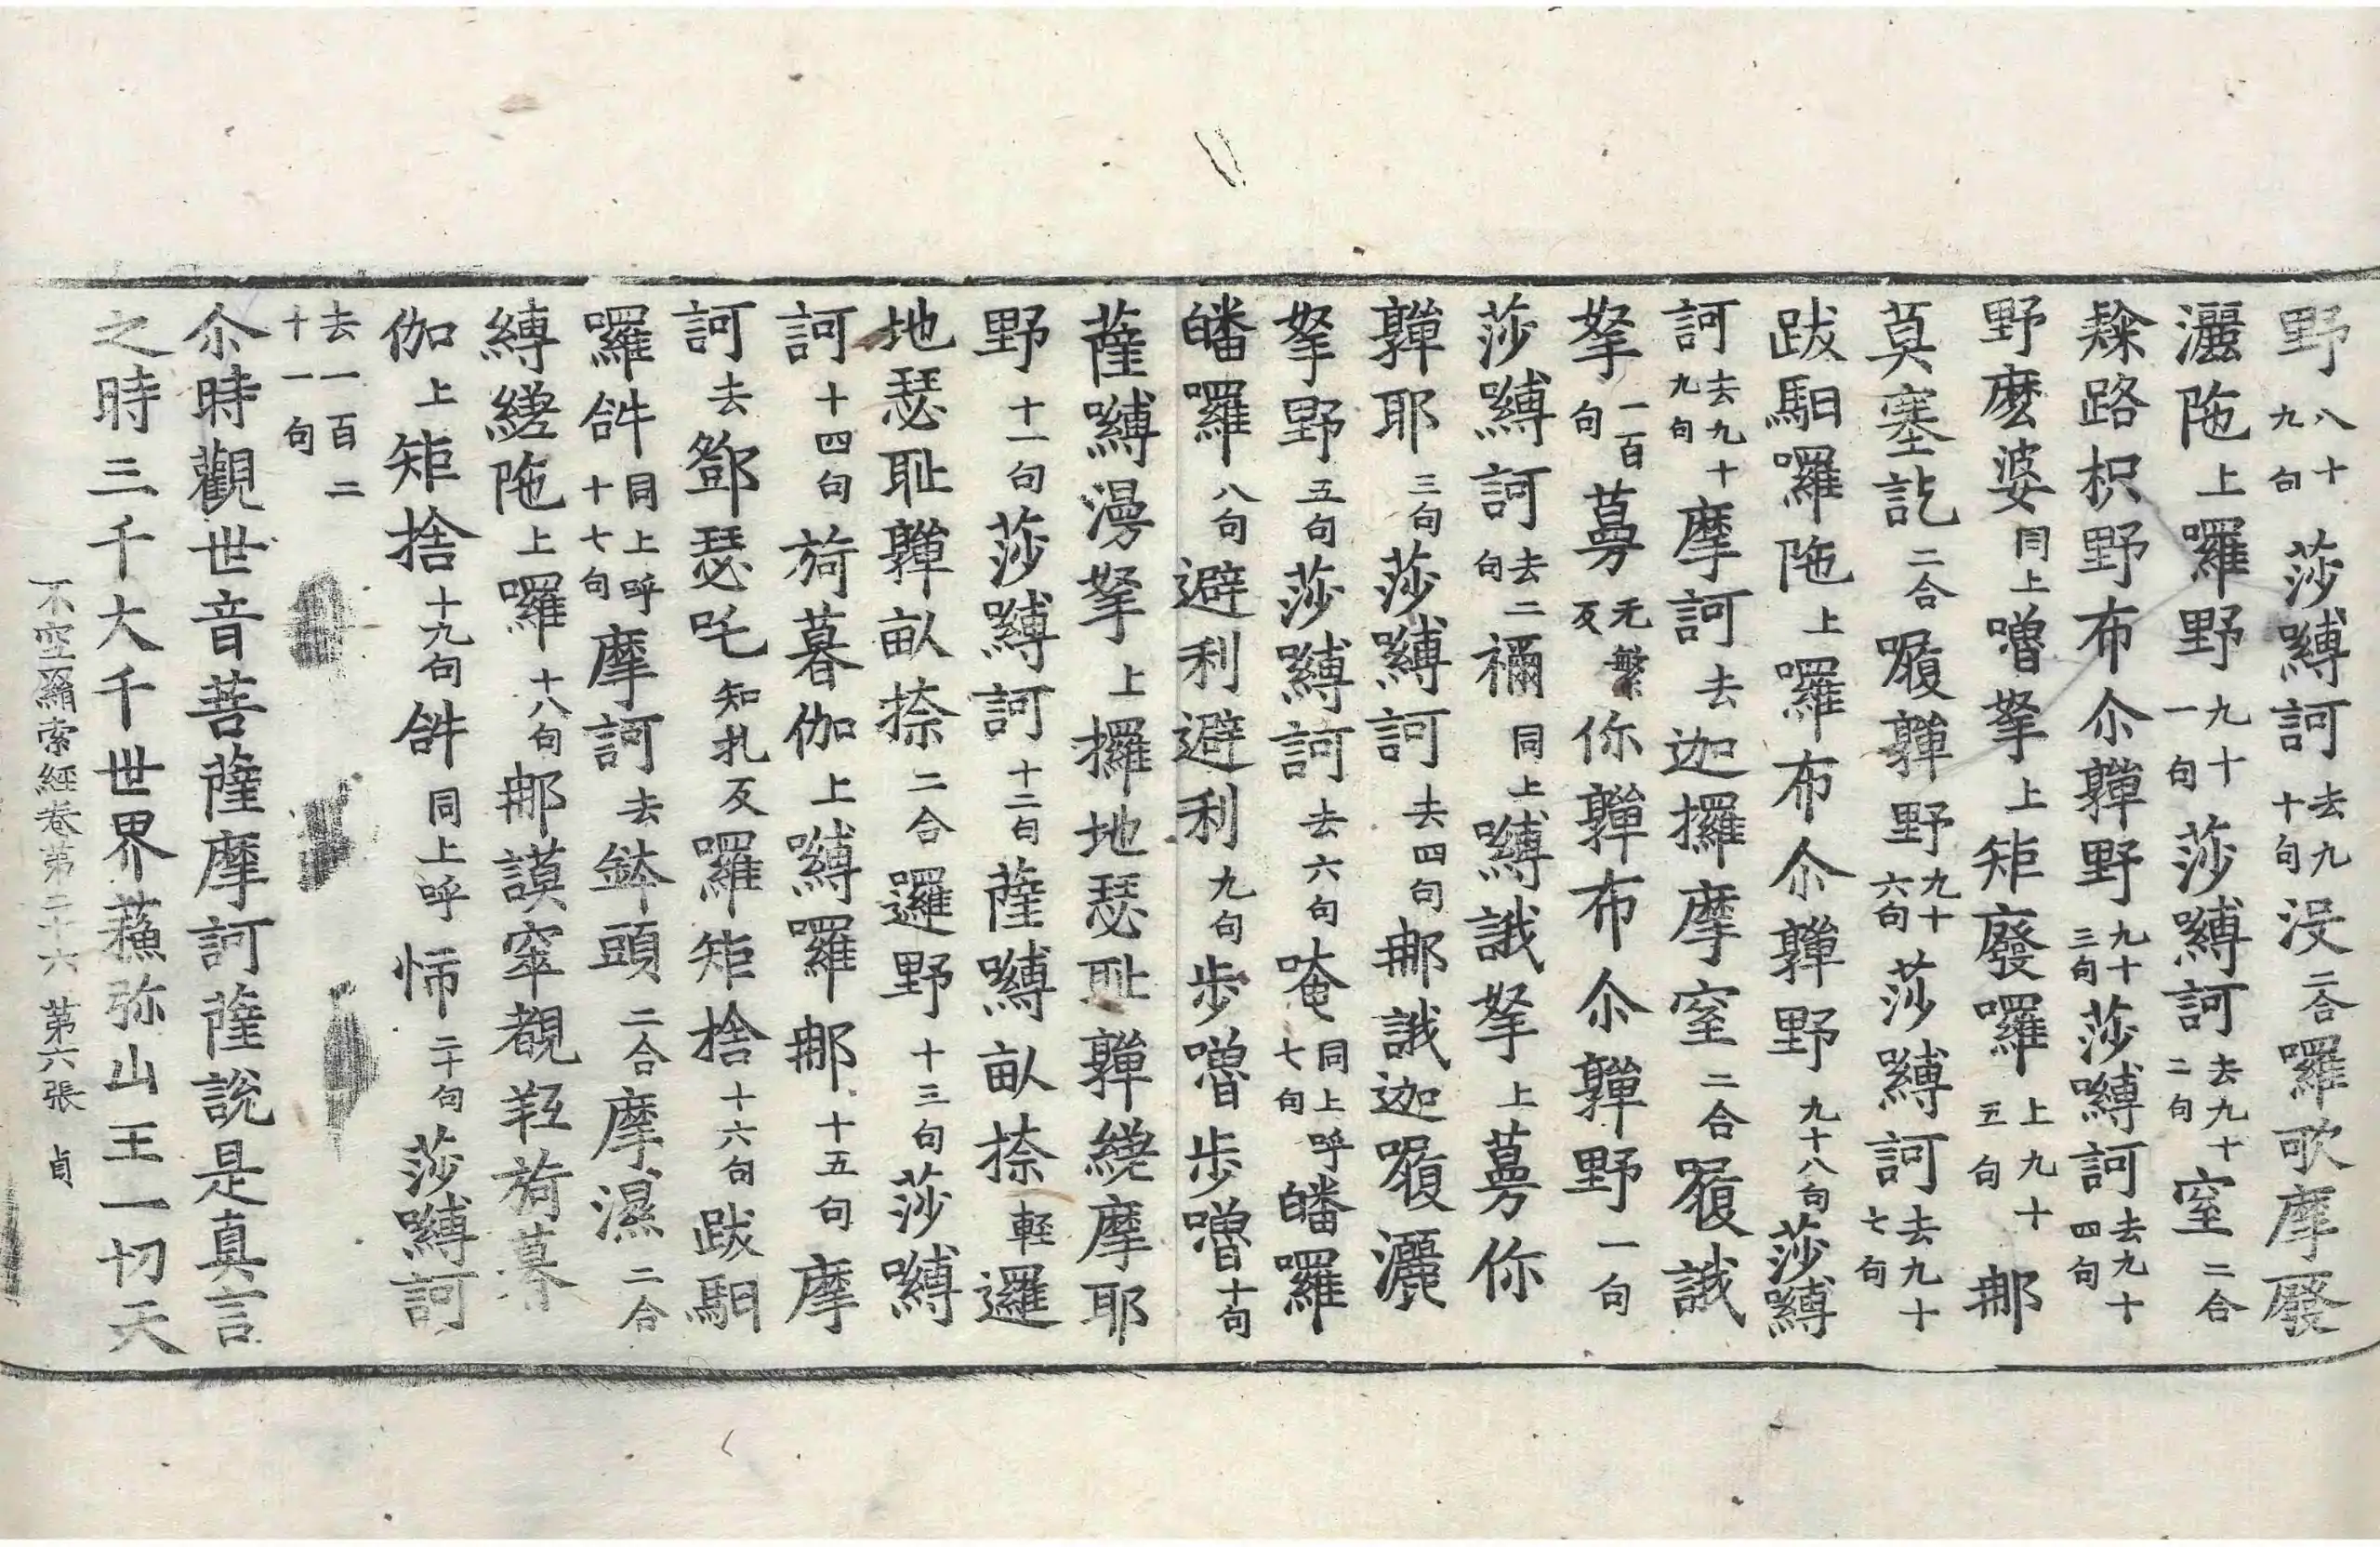 野八十九句莎嚩訶去九十句没二合囉歌摩廢
灑陁上囉野九十一句莎嚩訶去九十二句窒二合
𨽻路枳野布尒䭾野九十三句莎嚩訶去九十四句
野麽婆同上嚕拏上矩廢囉上九十五句𨙻
莫塞訖二合㗚䭾野九十六句莎嚩訶去九十七句
跋馹囉陁上囉布尒䭾野九十八句莎嚩
訶去九十九句摩訶去迦攞摩窒二合㗚誐
拏一百句蕚无繁反你䭾布尒䭾野一句
莎嚩訶去二句禰同上嚩誐拏上蕚你
䭾耶三句莎嚩訶去四句𨙻誐迦㗚灑
拏野五句莎嚩訶去六句唵同上呼七句皤囉
皤囉八句避利避利九句步嚕步嚕十句
薩嚩漫拏上攞地瑟耻䭾繞摩耶
野十一句莎嚩訶十二句薩嚩畝捺輕邏
地瑟耻䭾畝捺二合邏野十三句莎嚩
訶十四句旖暮伽上嚩囉𨙻十五句摩
訶去鄧瑟吒知扎反囉矩捨十六句跋馹
囉𤙖同上呼十七句摩訶去鉢頭二合摩濕二合
嚩繞陁上囉十八句𨙻謨窣覩羝旖暮
伽上矩捨十九句𤙖同上呼㤄二十句莎嚩訶
去一百二十一句
尒時觀世音菩薩摩訶薩說是真言
之時三千大千世界蘓弥山王一切天
不空羂索經卷第二十六 第六張 貞